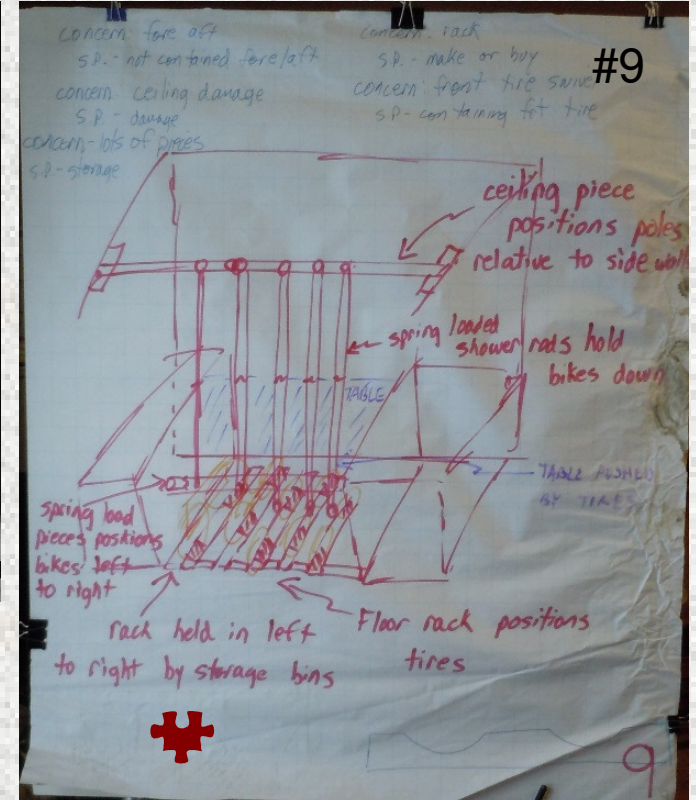 concern: fore aft
S.P. - not contained fore/aft
concern: ceiling damage
S.P. - damage
concern - lots of pieces
S.P. - storage
concern: rack
S.P. - make or buy
concern: front tire swivel
S.P. - containing frt tire
#9
ceiling piece
positions poles
relative to side wall
spring loaded
shower rods hold
bikes down
TABLE
TABLE PUSHED
BY TIRES
spring load
pieces positions
bikes left
to right
rack held in left
to right by storage bins
Floor rack positions
tires
9